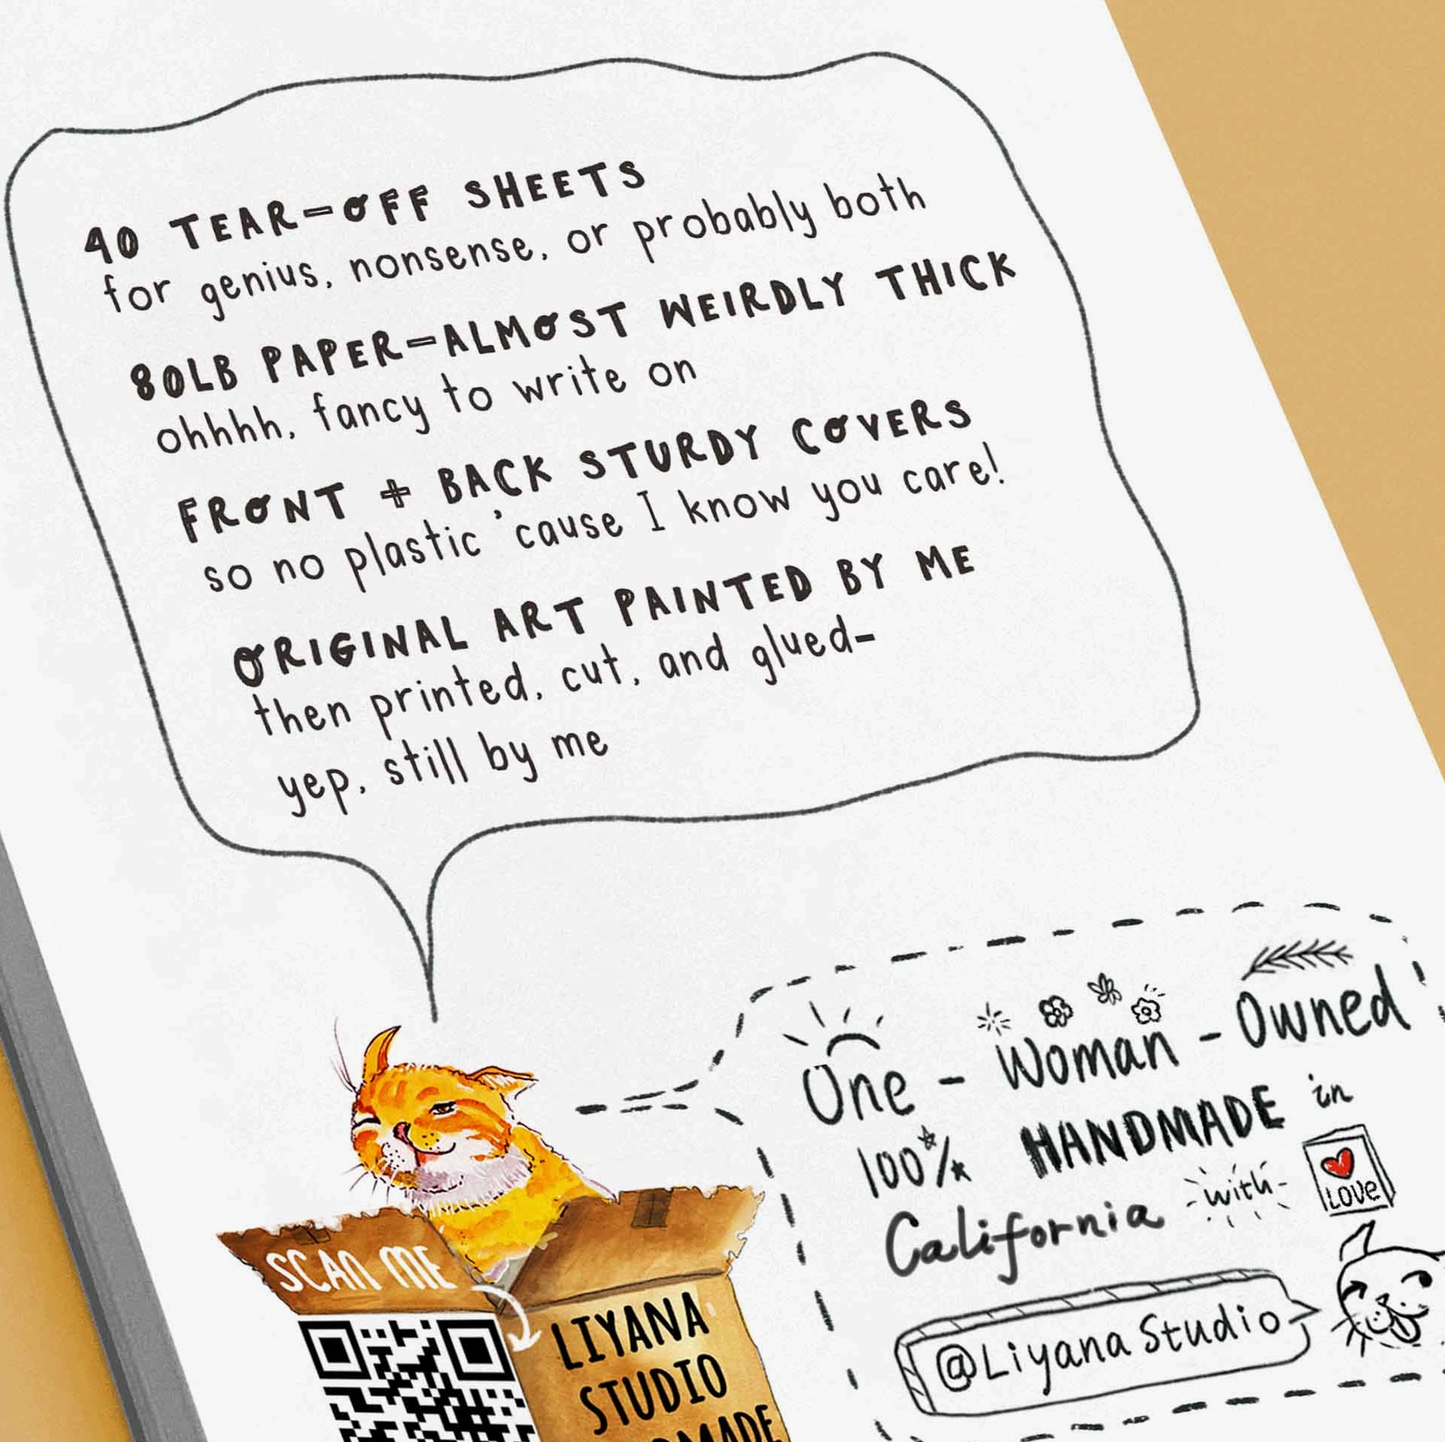 40 TEAR-OFF SHEETS
for genius, nonsense, or probably both
80LB PAPER-ALMOST WEIRDLY THICK
ohhhh, fancy to write on
FRONT + BACK STURDY COVERS
so no plastic 'cause I know you care!
ORIGINAL ART PAINTED BY ME
then printed, cut, and glued-
yep, still by me
SCAN ME
LIYANA
STUDIO
One - Woman - Owned
100% HANDMADE in
California with LOVE
@Liyana Studio